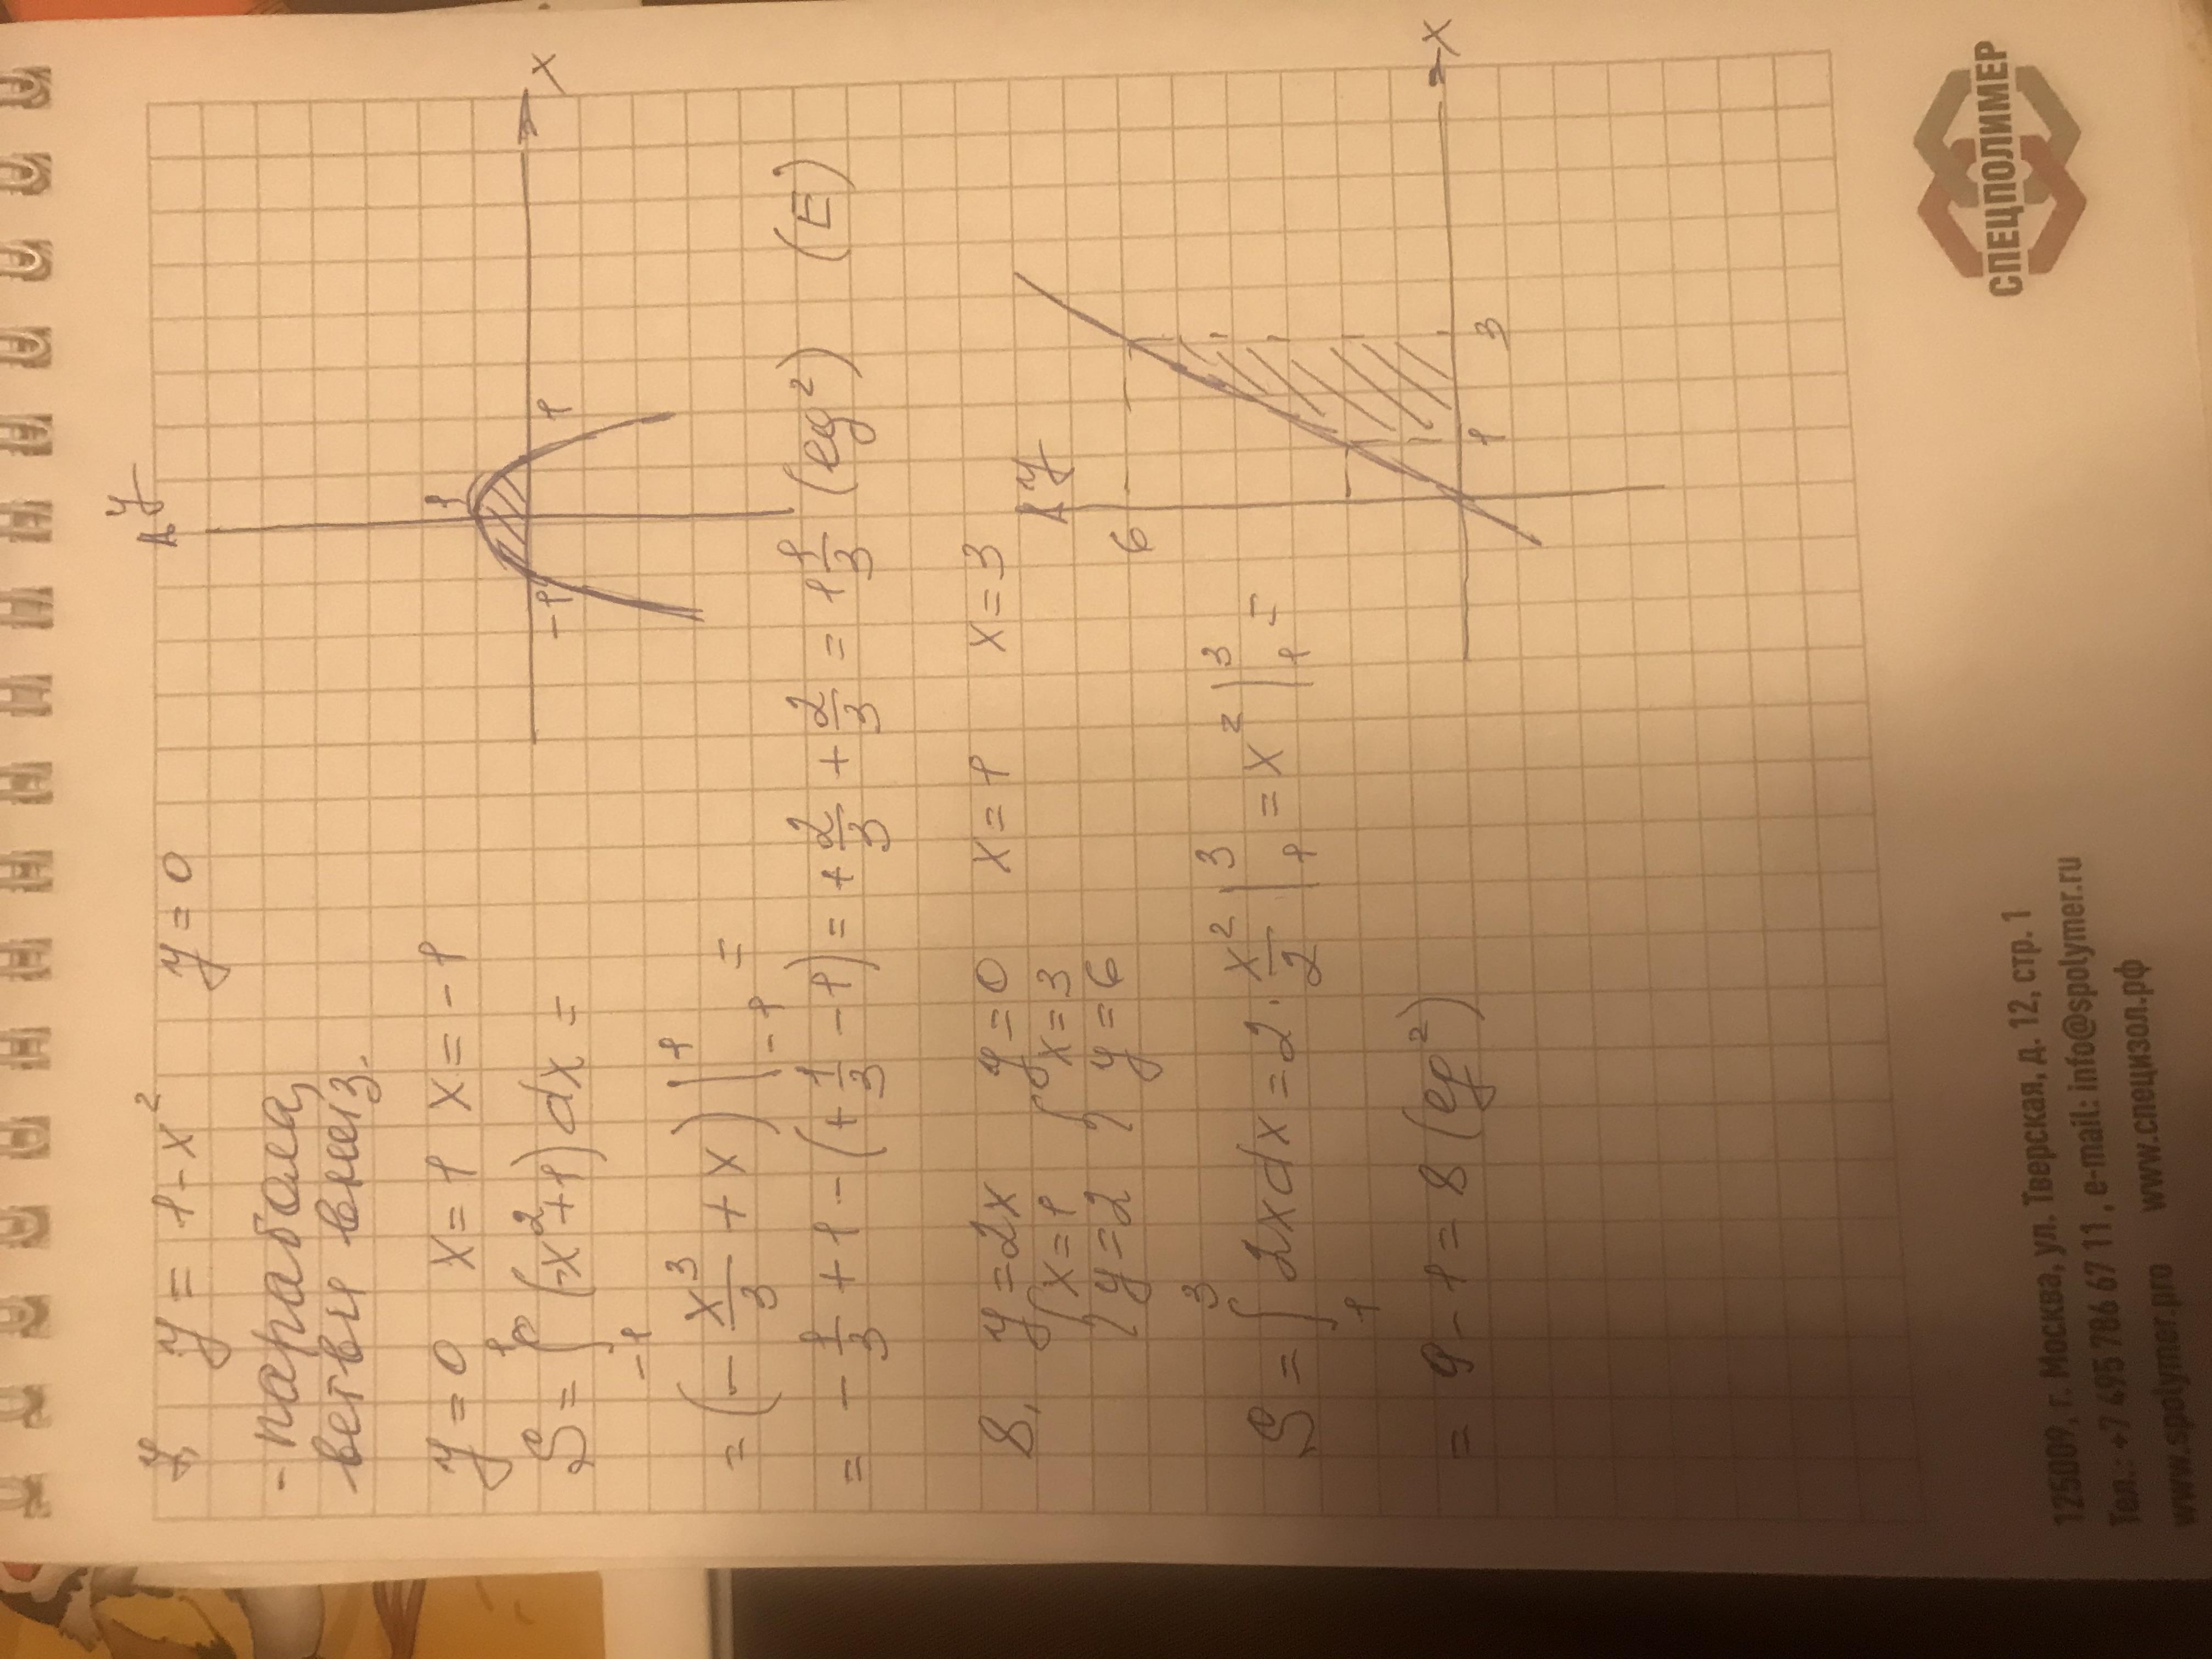 7, y = 1 - x² y = 0
- парабола,
ветви вниз.
y = 0 x = 1 x = -1
S = ∫₋₁¹ (-x² + 1) dx =
= (- x³/3 + x) |₋₁¹ =
= - 1/3 + 1 - (+ 1/3 - 1) = + 2/3 + 2/3 = 1 1/3 (ед²) (E)
y
x
1
-1
1
8, y = 2x y = 0 x = 1 x = 3
{ x = 1 { x = 3
{ y = 2 { y = 6
S = ∫₁³ 2x dx = 2 · x²/2 |₁³ = x² |₁³ =
= 9 - 1 = 8 (ед²)
y
6
x
1
3
125009, г. Москва, ул. Тверская, д. 12, стр. 1
Тел.: +7 495 786 67 11, e-mail: info@spolymer.ru
www.spolymer.pro www.специзол.рф
СПЕЦПОЛИМЕР